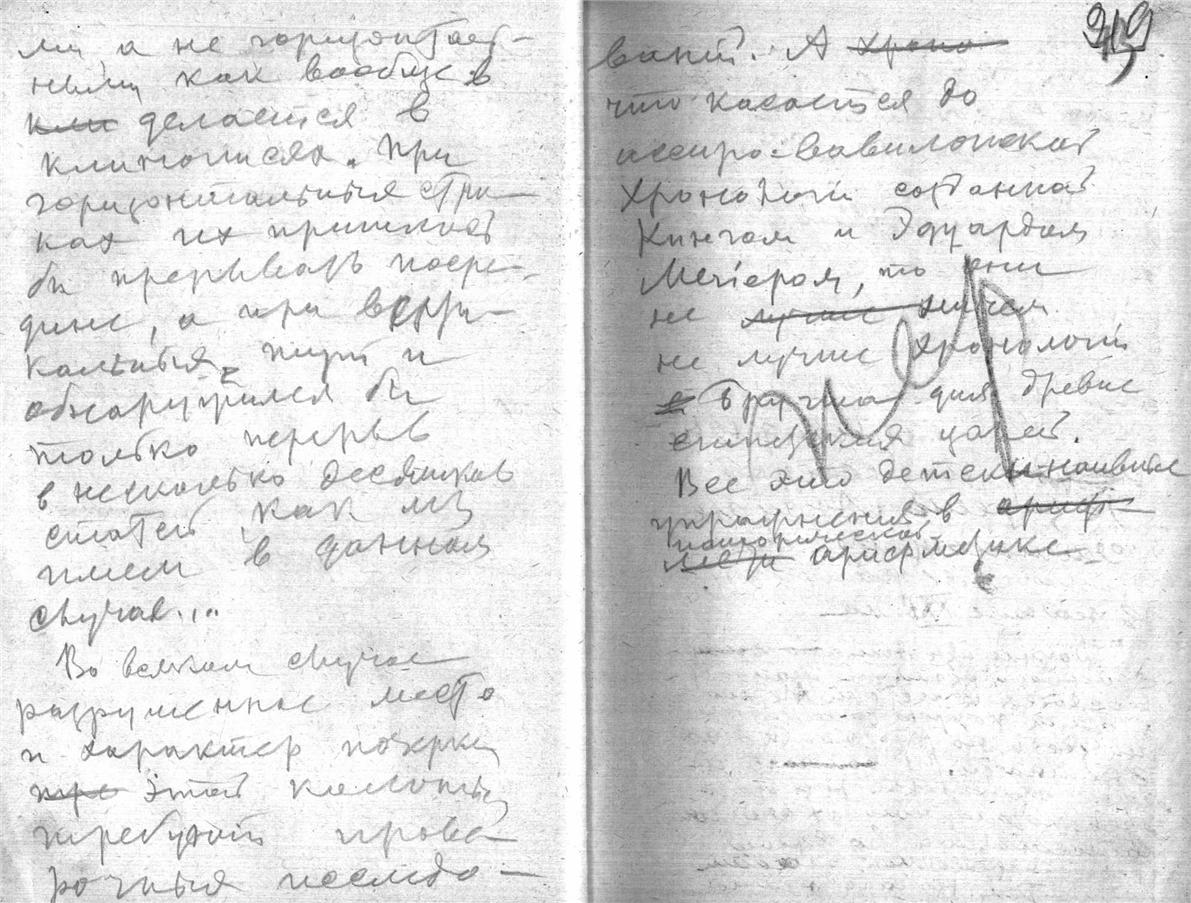 ми, а не горизонталь-
ными как вообще в
кли делается в
клинописях. При
горизонтальных стро-
ках их пришлось
бы прерывать посре-
дине, а при верти-
кальных
обнаружился бы
только перерыв
в несколько десятков
статей, как мы
имеем в данном
случае...
Во всяком случае
разрушенное место
и характер почерка
этой колонны
требуют прове-
рочных исследо-
ваний. А хроно
что касается до
ассиро-вавилонской
хронологии созданной
Кингом и Эдуардом
Мейером, то они
не лучше ничем
не лучше хронологии
Бругша для древне
египетских царей.
Все это детски-наивные
упражнения в ариф-
исторической
арифметике